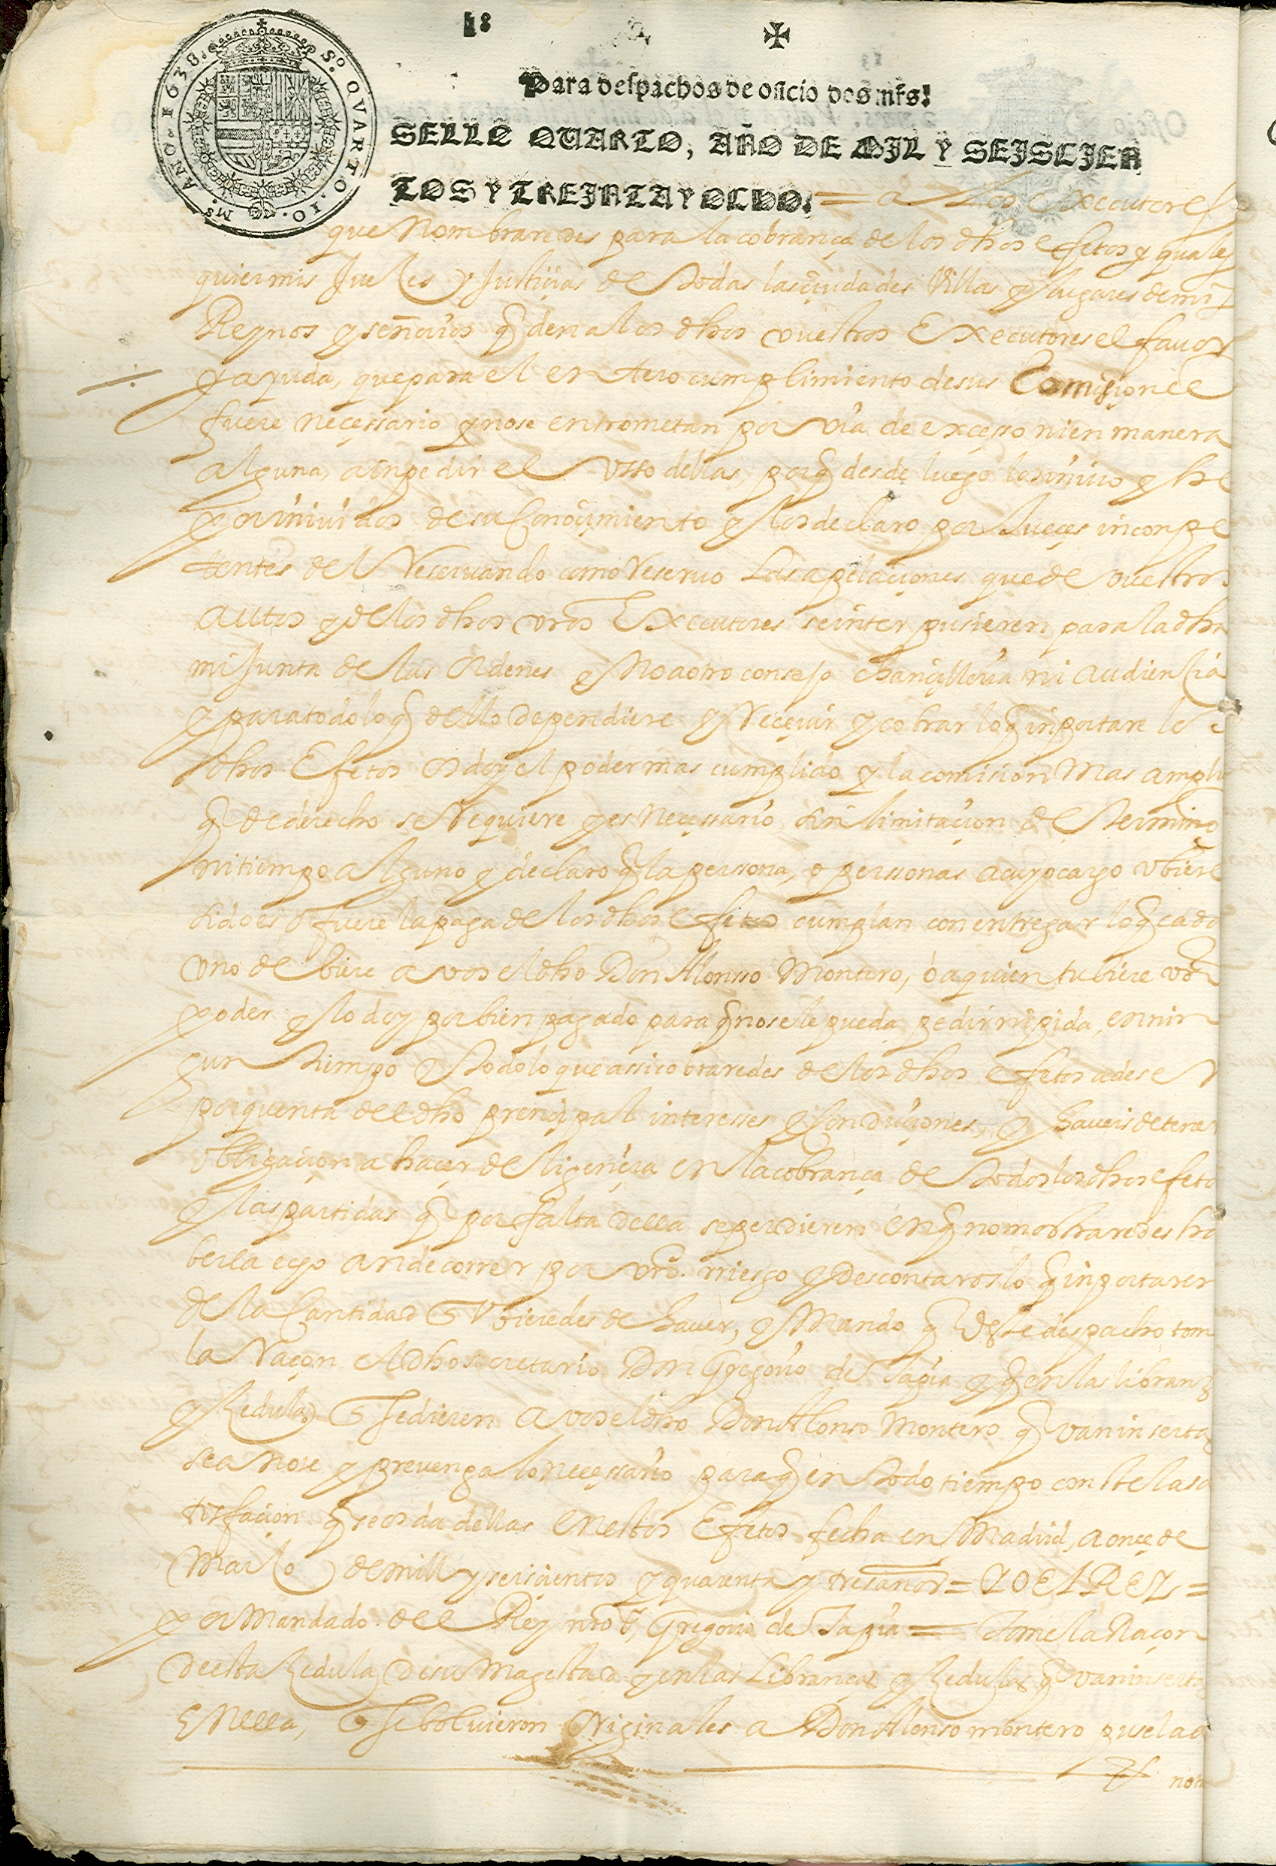 18
✠
Para despachos de oficio dos mrs.
SELLO QUARTO, AÑO DE MIL Y SEISCIEN
TOS Y TREINTA Y OCHO.
= a los executores
SO QVARTO. 10. Ms. ANO. 1638.
que Nombraredes para la cobrança de los dhos efetos y quales
quier mis Jueces y Justicias de todas las ciudades Villas y lugares de mis
Reynos y señorios q den a los dhos vuestros Executores el favor
y ayuda, que para el entero cumplimiento de sus Comisiones
fuere neçessario y no se entrometan por via de exçesso ni en manera
alguna, a inpedir el usso dellas, porq desde luego los inivo y he
por inividos de su Conoçimiento y los declaro por Jueçes inconpe
tentes del Reservando como reservo Las apelaciones que de vuestros
autos y de los dhos vros Executores se inter pusieren, para la dha
mi Junta de las Ordenes y No a otro consejo chançilleria ni audiencia
y para todo lo q dello dependiere y Reçevir y cobrar lo q inportare los
dhos Efetos os doy el poder mas cumplido y la comision Mas amplia
q de derecho se Requiere y es Neçessario sin limitaçion de termino
ni tiempo alguno y declaro q la persona, o perssonas a cuyo cargo ubiere
sido es o fuere la paga de los dhos efetos cumplan con entregar lo q cada
uno debiere a vos el dho Don Alonsso Montero, ó a quien tubiere vro
poder y lo doy por bien pagado para q no se le pueda pedir ni pida en nin
gun tiempo y todo lo que assi cobraredes de los dhos efetos a de ser
por quenta del dho prençipal interesses y Conduçiones, y haveis de tener
obligaçion a haçer deligençia en la cobrança de todos los dhos efetos
y las partidas q por falta della se perdieren en q no mostraredes ha
berla echo an de correr por vro. rriesgo y descontaros lo q inportaren
de la Cantidad q Ubieredes de haver, y Mando q deste despacho tome
la Raçon el dho secretario Don Gregorio de Tapia y q en las libranças
y Zedulas q se dieren a vos el dho Don Alonso Montero q van insertas
se anote y prevenga lo neçessario para q en todo tiempo conste la sa
tisfaçion q se os da dellas en estos Efetos fecha en Madrid, a onçe de
Março de mill y seiscientos y quarenta y tres años = YO EL REY =
por Mandado del Rey nro sr, Gregorio de Tapia = Tome la Raçon
de esta Zedula de su Magestad y en las Libranças y Zedulas q van insertas
en ella, q se bolvieron originales a Don Alonso montero puse la a
nota